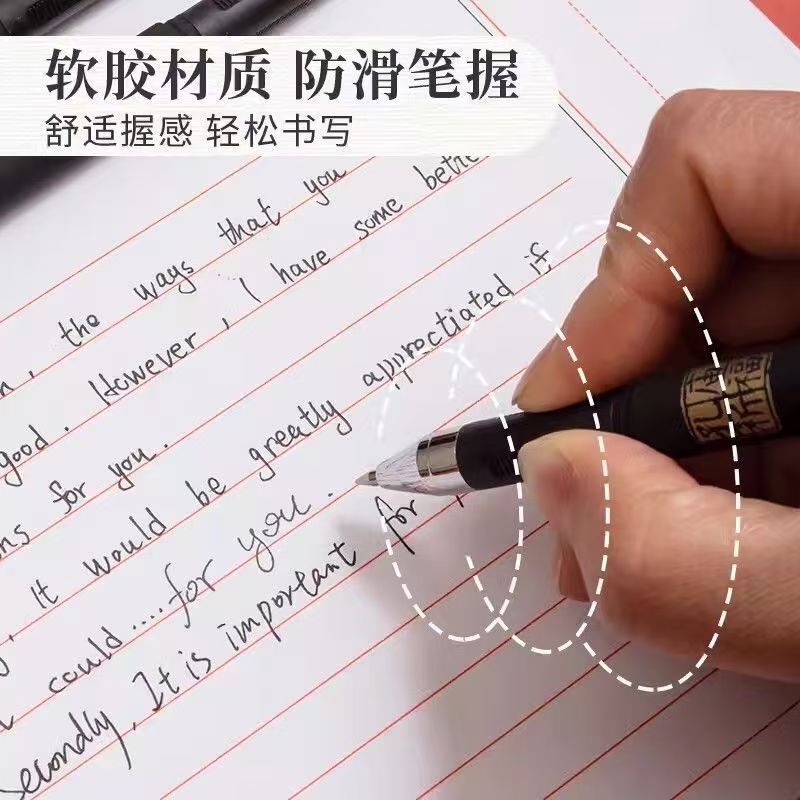 软胶材质 防滑笔握
舒适握感 轻松书写
, the ways that you
good. However, I have some bette
ns for you.
, it would be greatly apprectiated if
could....for you.
Secondly, It is important for
孔庙祈福